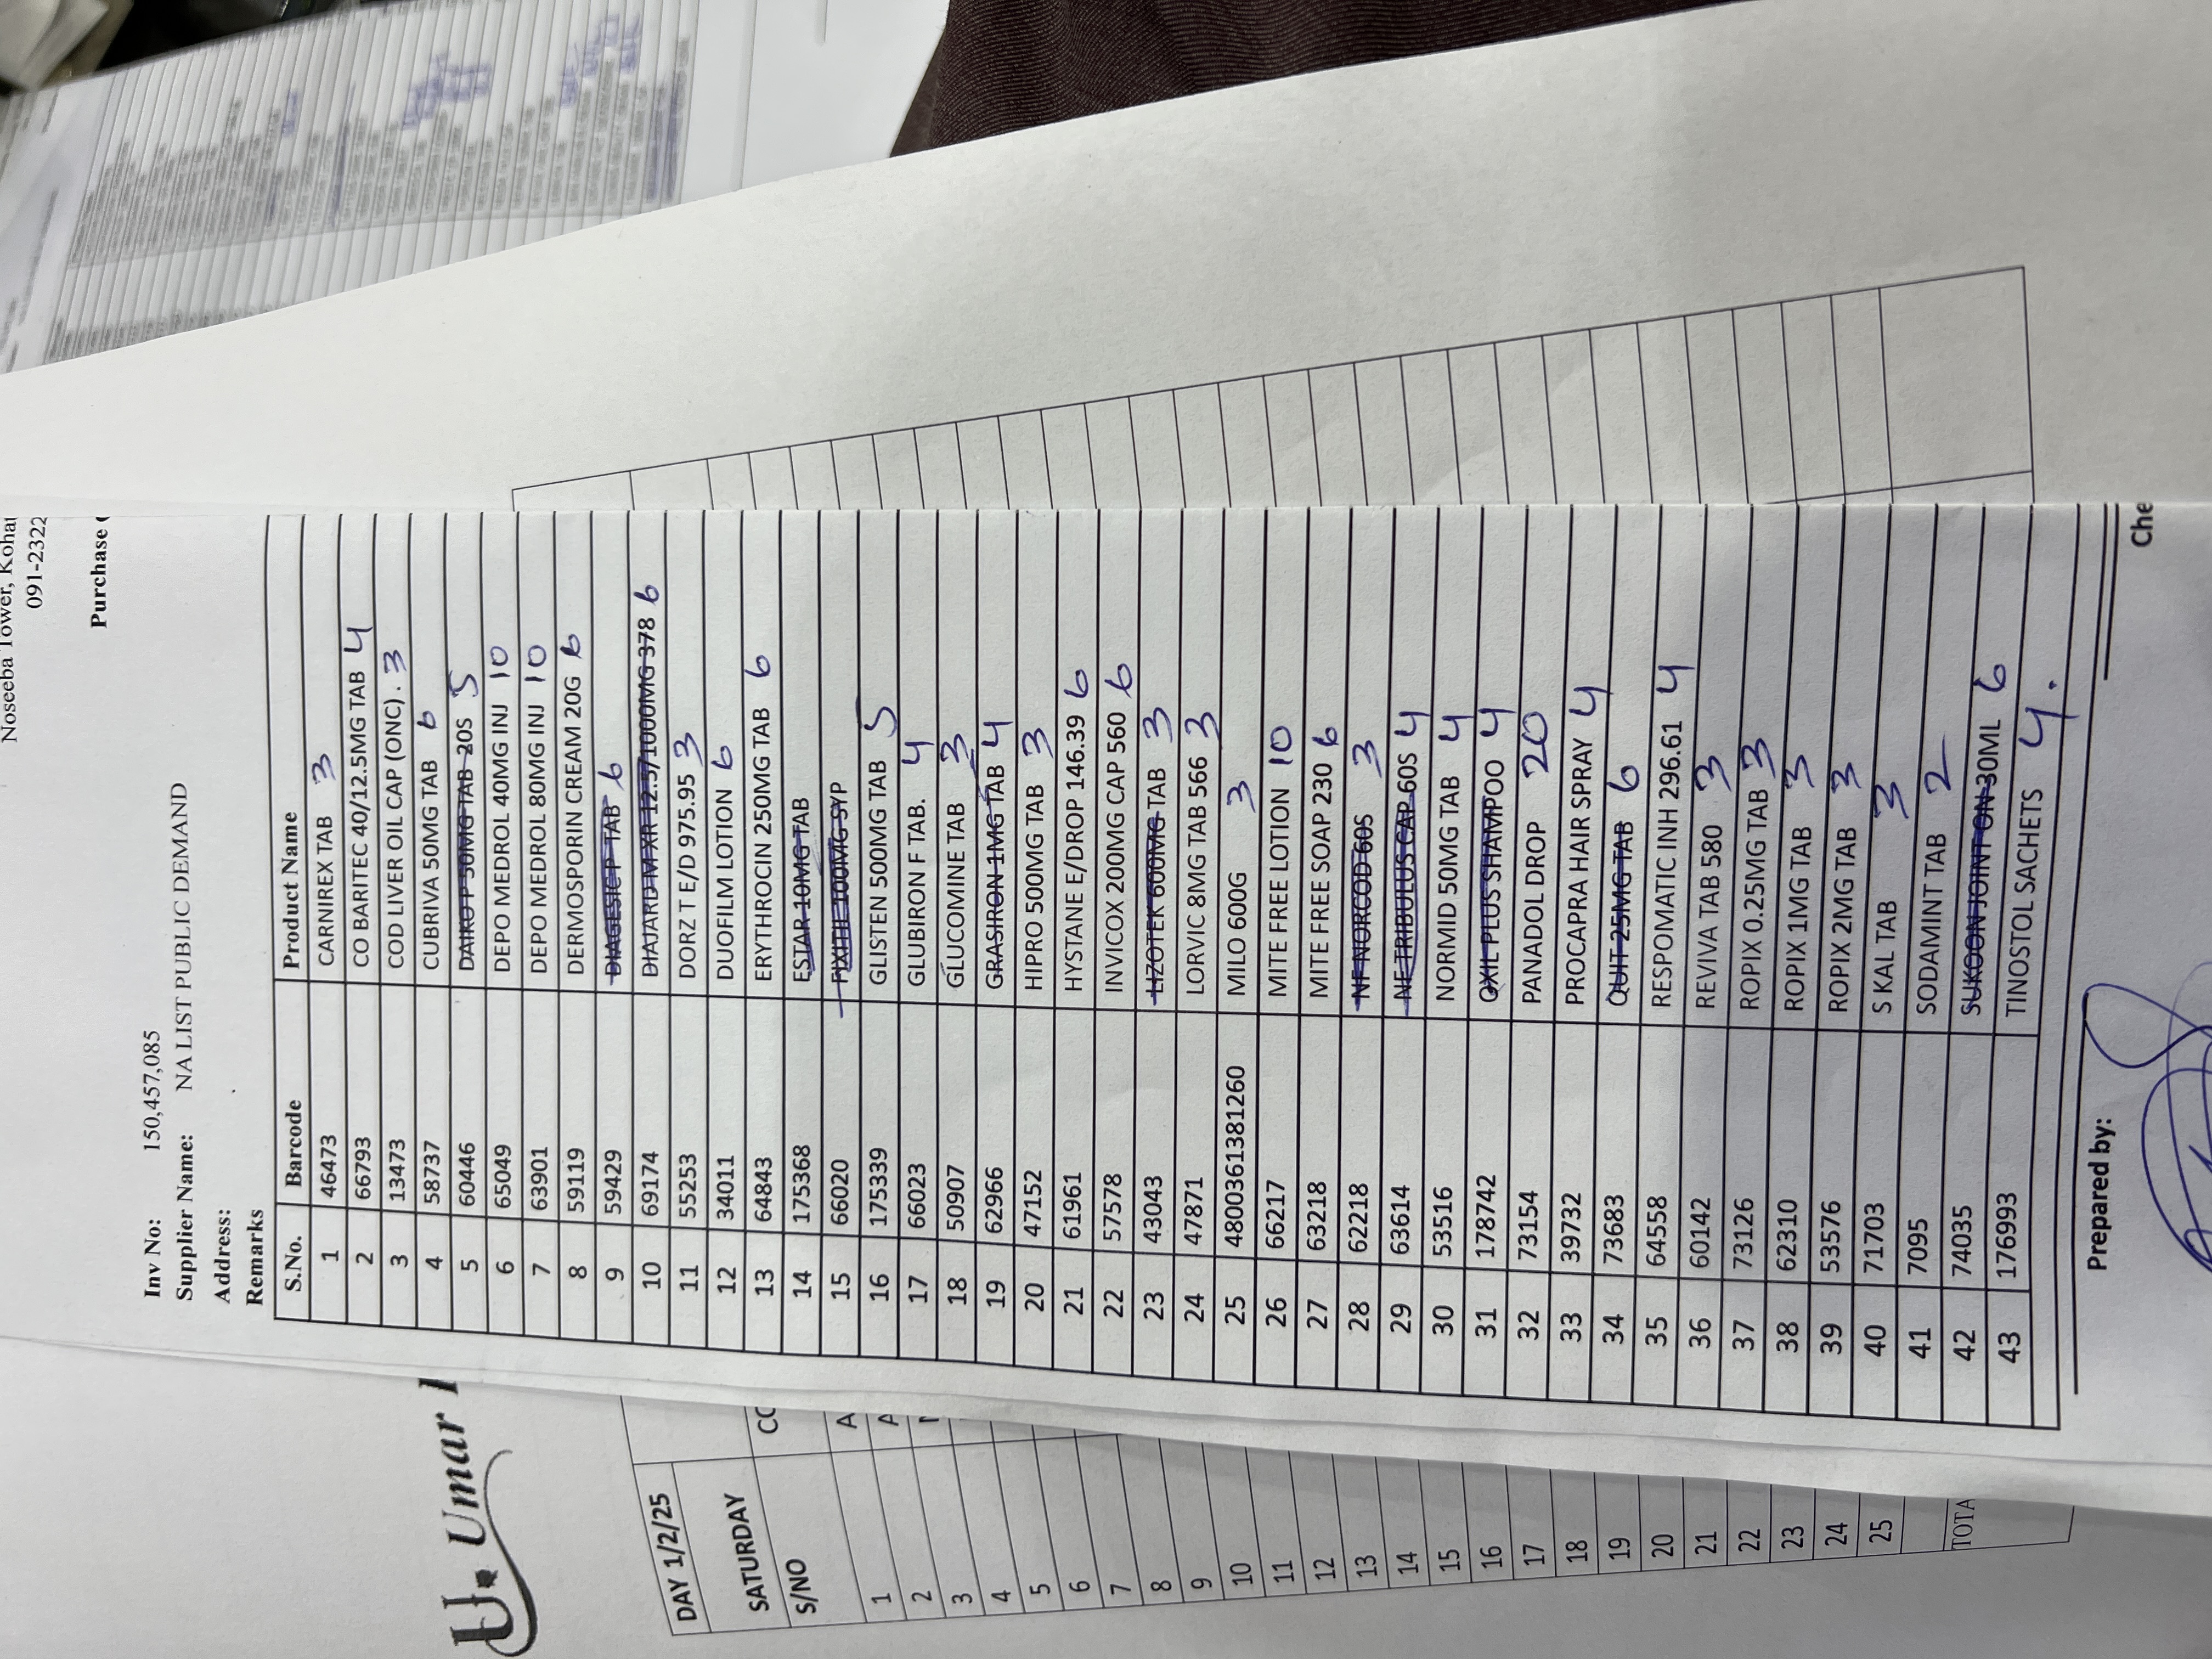 Noseeba Tower, Kohat
091-2322
Purchase
Inv No: 150,457,085
Supplier Name: NA LIST PUBLIC DEMAND
Address:
Remarks
S.No. Barcode Product Name
1 46473 CARNIREX TAB 3
2 66793 CO BARITEC 40/12.5MG TAB 4
3 13473 COD LIVER OIL CAP (ONC). 3
4 58737 CUBRIVA 50MG TAB 6
5 60446 DAIKO P 50MG TAB 20S 5
6 65049 DEPO MEDROL 40MG INJ 10
7 63901 DEPO MEDROL 80MG INJ 10
8 59119 DERMOSPORIN CREAM 20G 6
9 59429 DIAGESIC P TAB 6
10 69174 DIAJARD M XR 12.5/1000MG 378 6
11 55253 DORZ T E/D 975.95 3
12 34011 DUOFILM LOTION 6
13 64843 ERYTHROCIN 250MG TAB 6
14 175368 ESTAR 10MG TAB
15 66020 FIXITIL 100MG SYP
16 175339 GLISTEN 500MG TAB 5
17 66023 GLUBIRON F TAB. 4
18 50907 GLUCOMINE TAB 3
19 62966 GRASIRON 1MG TAB 4
20 47152 HIPRO 500MG TAB 3
21 61961 HYSTANE E/DROP 146.39 6
22 57578 INVICOX 200MG CAP 560 6
23 43043 LIZOTEK 600MG TAB 3
24 47871 LORVIC 8MG TAB 566 3
25 4800361381260 MILO 600G 3
26 66217 MITE FREE LOTION 10
27 63218 MITE FREE SOAP 230 6
28 62218 NF NORCOD 60S 3
29 63614 NF TRIBULUS CAP 60S 4
30 53516 NORMID 50MG TAB 4
31 178742 OXIL PLUS SHAMPOO 4
32 73154 PANADOL DROP 20
33 39732 PROCAPRA HAIR SPRAY 4
34 73683 QUIT 25MG TAB 6
35 64558 RESPOMATIC INH 296.61 4
36 60142 REVIVA TAB 580 3
37 73126 ROPIX 0.25MG TAB 3
38 62310 ROPIX 1MG TAB 3
39 53576 ROPIX 2MG TAB 3
40 71703 S KAL TAB 3
41 7095 SODAMINT TAB 2
42 74035 SUKOON JOINT ON 30ML 6
43 176993 TINOSTOL SACHETS 4.
Prepared by:
Che
U. Umar
DAY 1/2/25
SATURDAY CO
S/NO A
1 A
2
3
4
5
6
7
8
9
10
11
12
13
14
15
16
17
18
19
20
21
22
23
24
25
TOTA